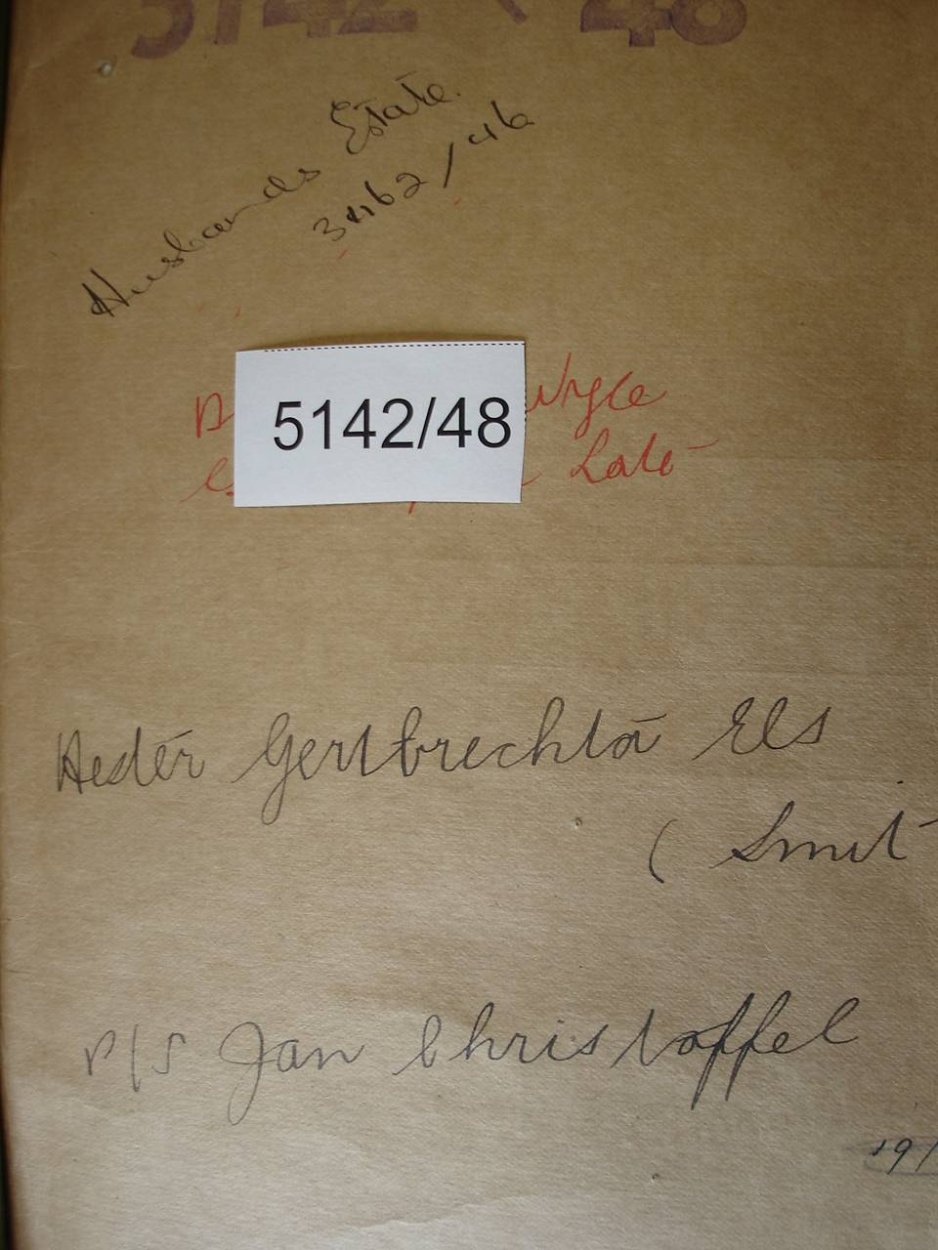 5142 48
Husbands Estate.
3462/46
5142/48
Late
Hester Gertbrechta Els
( Smit
P/S Jan Christoffel
191